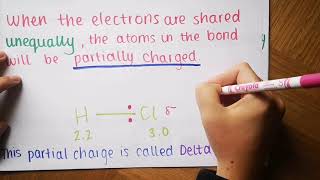 When the electrons are shared
unequally, the atoms in the bond
will be partially charged
H Cl δ-
2.2 3.0
This partial charge is called Delta
Crayola